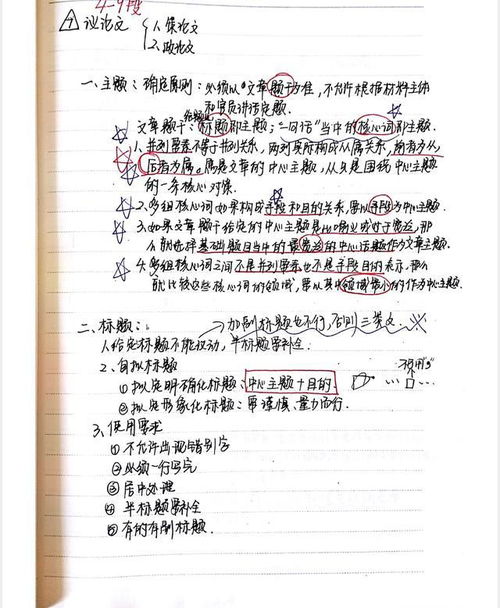 4-9段
⑦ 议论文 1. 策论文
2. 政论文
一、主题：确定原则：必须以文章题干为准，不允许根据材料主体
和官员讲话定题.
给标题
文章题干：标题即主题；“一句话”当中的核心词即主题.
1. 并列要素不等于并列关系，两列实际构成从属关系，前者为从，
后者为属。属是文章的中心主题，从只是围绕中心主题
的一条核心对象.
2. 多组核心词如果构成手段和目的关系，要以手段为中心主题
3. 如果文章题干给定的中心主题是 或处于宽泛，那
么就选择基础题目当中的最宽泛的中心话题作为文章主题.
4. 多组核心词之间不是并列要素也不是手段目的表示，那么
就比较这些核心词的领域，要以其中领域最小的作为中心主题.
二、标题：
加副标题也不行，否则三类文. ※
1. 给定标题不能改动，半标题要补全.
2. 自拟标题
① 拟定明确化标题：中心主题+目的 不用“ ”
② 拟定形象化标题：要谨慎、量力而行.
3. 使用要求
① 不允许出现错别字
② 必须一行写完
③ 居中处理
④ 半标题要补全
⑤ 有的有副标题.